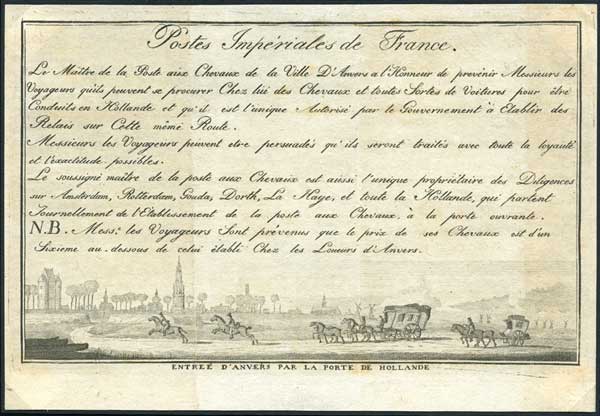 Postes Impériales de France.
Le Maître de la Poste aux Chevaux de la Ville D'Anvers a l'Honneur de prévenir Messieurs les
Voyageurs qu'ils peuvent se procurer Chez lui des Chevaux et toutes Sortes de Voitures pour être
Conduits en Hollande et qu'il est l'unique Autorisé par le Gouvernement à Etablir des
Relais sur Cette même Route.
Messieurs les Voyageurs peuvent etre persuadés qu'ils seront traités avec toute la loyauté
et l'éxactitude possibles.
Le soussigné maître de la poste aux Chevaux est aussi l'unique propriétaire des Diligences
sur Amsterdam, Rotterdam, Gouda, Dorth, La Haye, et toute la Hollande, qui partent
Journellement de l'Etablissement de la poste aux Chevaux à la porte ouvrante.
N.B. Mess.rs les Voyageurs Sont prévenus que le prix de ses Chevaux est d'un
Sixieme au-dessous de celui établi Chez les Loueurs d'Anvers.
ENTREÉ D'ANVERS PAR LA PORTE DE HOLLANDE